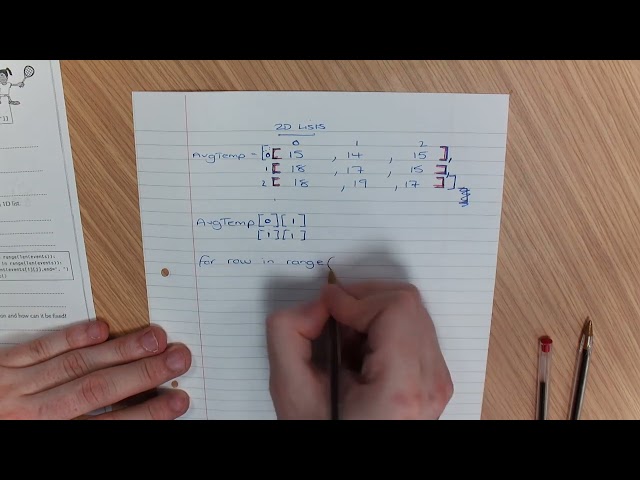 2D LISTS
0 1 2
AvgTemp = [0[ 15 , 14 , 15 ],
1 [ 18 , 17 , 15 ],
2 [ 18 , 19 , 17 ]]
AvgTemp[0][1]
[1][1]
for row in range(
s 1D list.
range(len(events)):
n range(len(events)):
nt(events[i][j],end=", ")
on and how can it be fixed?